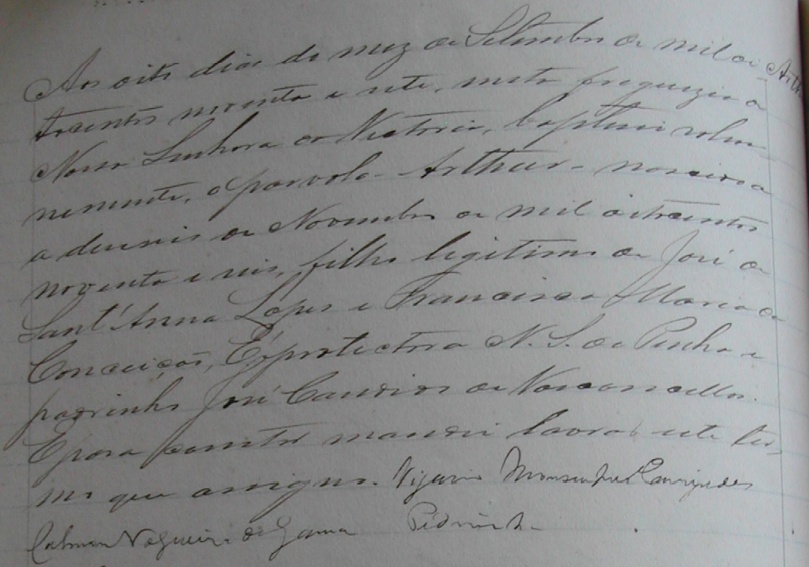 Aos oito dias do mez de Setembro de mil oi-
tocentos noventa e sete, nesta freguezia de
Nossa Senhora da Victoria, baptisei solem-
nemente, o parvolo - Arthur - nascido a
a deseseis de Novembro de mil oitocentos
noventa e seis, filho legitimo de José de
Sant'Anna Lopes e Francisca Maria da
Conceição, É protectora N. S. da Penha e
padrinho José Candido de Vasconcellos.
E para constar mandei lavrar este ter-
mo que assigno. Vigario Monsenhor
Nogueira da Gama